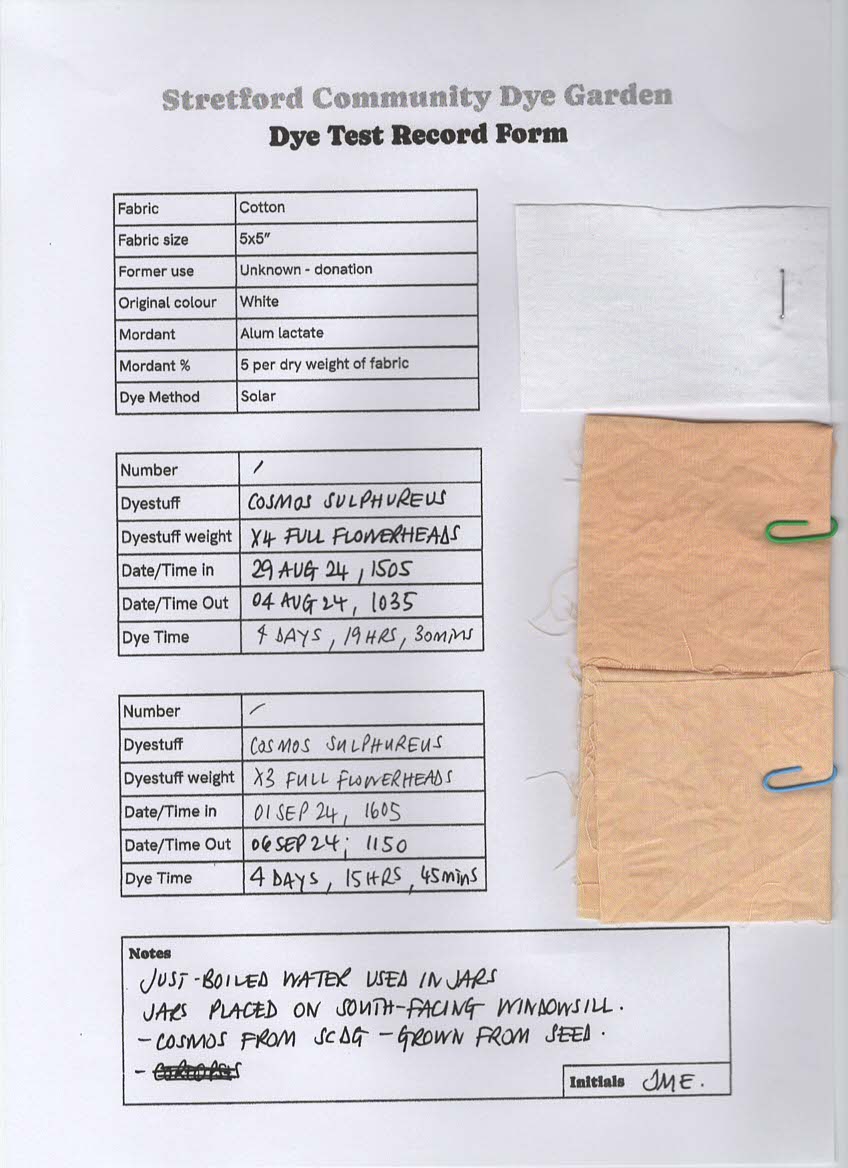 Stretford Community Dye Garden
Dye Test Record Form
Fabric Cotton
Fabric size 5x5"
Former use Unknown - donation
Original colour White
Mordant Alum lactate
Mordant % 5 per dry weight of fabric
Dye Method Solar
Number /
Dyestuff COSMOS SULPHUREUS
Dyestuff weight X4 FULL FLOWERHEADS
Date/Time in 29 AUG 24, 1505
Date/Time Out 04 AUG 24, 1035
Dye Time 4 DAYS, 19 HRS, 30 mins
Number /
Dyestuff COSMOS SULPHUREUS
Dyestuff weight X3 FULL FLOWERHEADS
Date/Time in 01 SEP 24, 1605
Date/Time Out 06 SEP 24, 1150
Dye Time 4 DAYS, 15 HRS, 45 mins
Notes
JUST-BOILED WATER USED IN JARS
JARS PLACED ON SOUTH-FACING WINDOWSILL.
- COSMOS FROM SCDG - GROWN FROM SEED.
-
Initials JME.